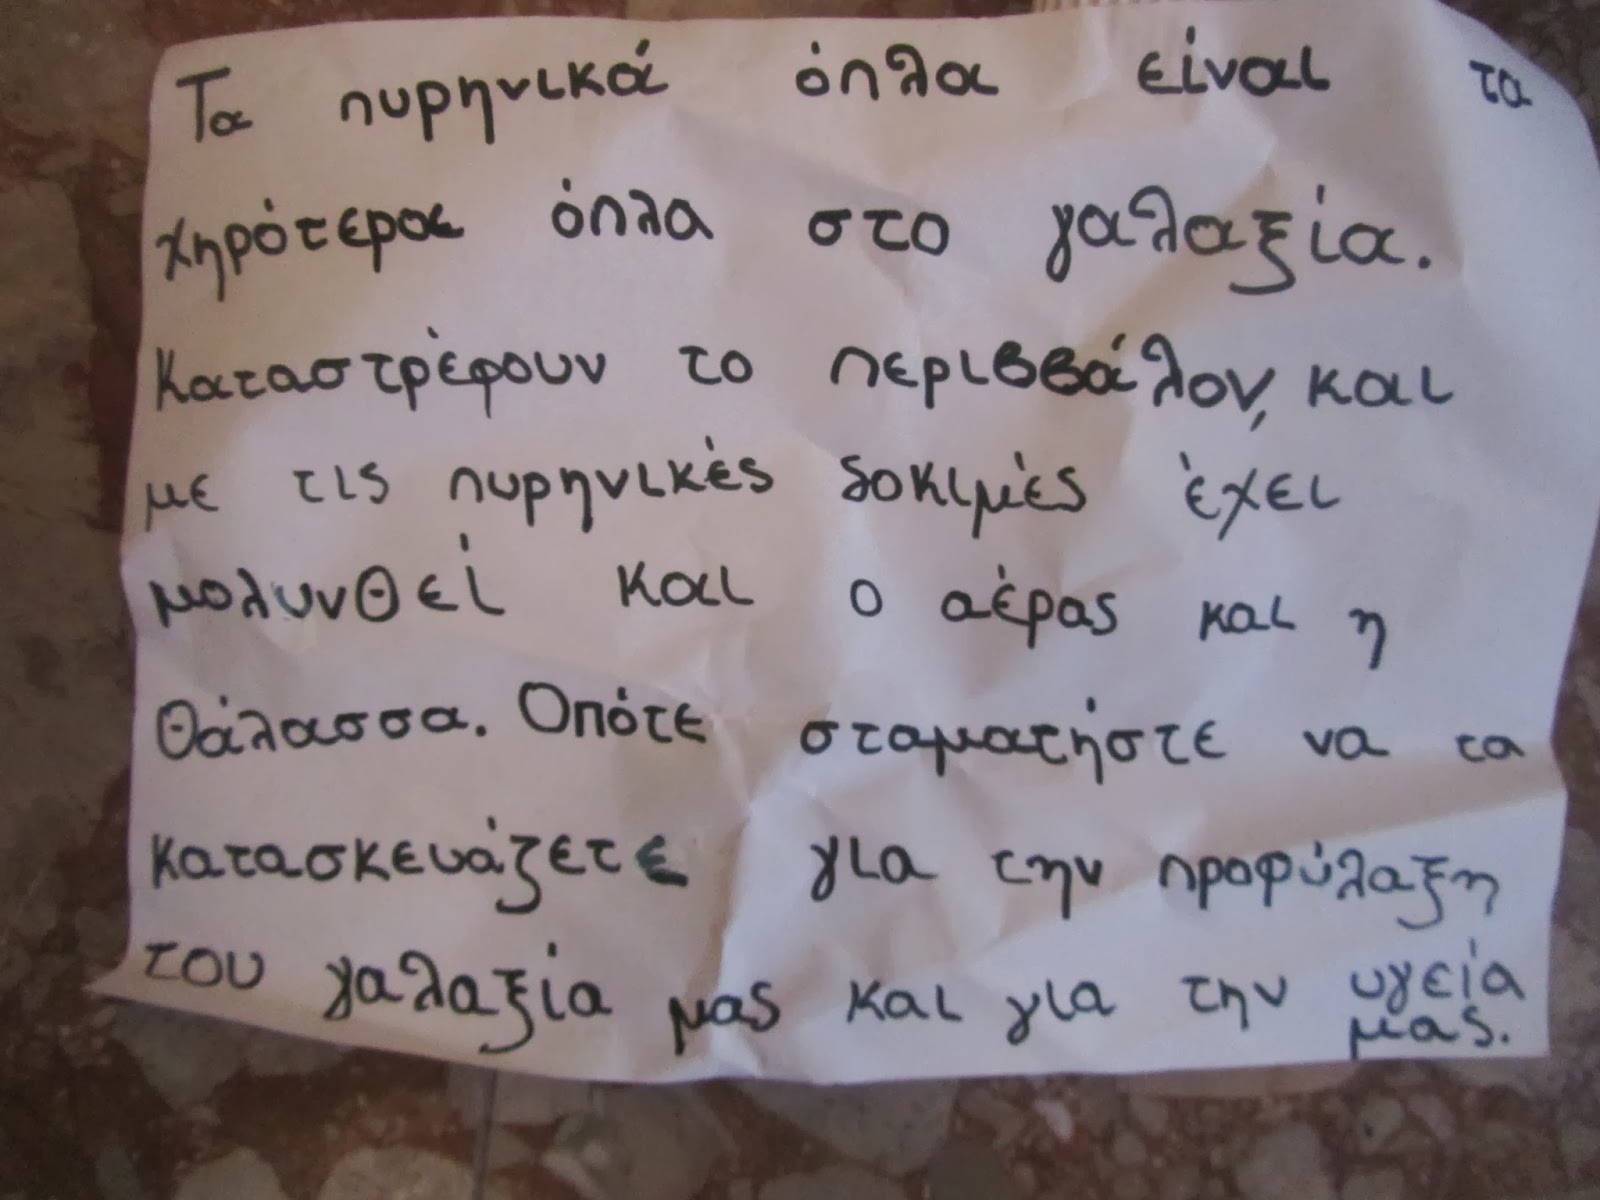 Τα πυρηνικά όπλα είναι τα
χηρότερα όπλα στο γαλαξία.
Καταστρέφουν το περιββάλον, και
με τις πυρηνικές δοκιμές έχει
μολυνθεί και ο αέρας και η
θάλασσα. Οπότε σταματήστε να τα
κατασκευάζετε για την προφύλαξη
του γαλαξία μας και για την υγεία
μας.